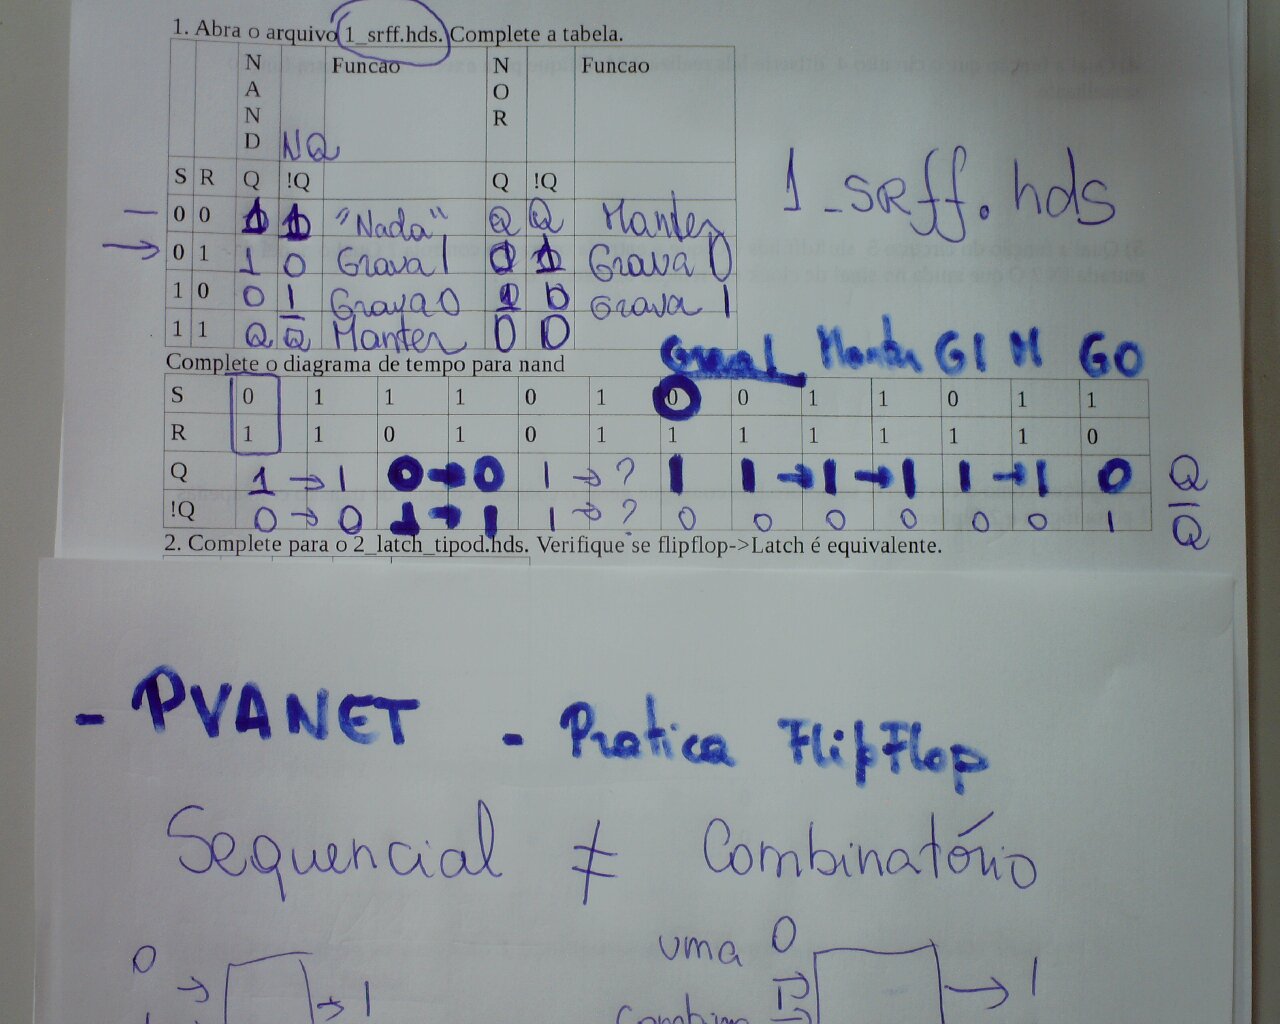 1. Abra o arquivo 1_srff.hds. Complete a tabela.
NAND NQ Funcao NOR Funcao
S R Q !Q Q !Q
0 0 1 1 "Nada" Q Q̅ Manter
0 1 1 0 Grava 1 0 1 Grava 0
1 0 0 1 Grava 0 1 0 Grava 1
1 1 Q Q̅ Manter 0 0
1_SRff.hds
Complete o diagrama de tempo para nand
Grava1 Manter G1 M G0
S 0 1 1 1 0 1 0 0 1 1 0 1 1
R 1 1 0 1 0 1 1 1 1 1 1 1 0
Q 1 → 1 0 → 0 1 → ? 1 1 → 1 → 1 1 → 1 0 Q
!Q 0 → 0 1 → 1 1 → ? 0 0 0 0 0 0 1 Q̅
2. Complete para o 2_latch_tipod.hds. Verifique se flipflop->Latch é equivalente.
- PVANET - Pratica FlipFlop
Sequencial ≠ Combinatório
0 uma 0
→ → 1 → 1